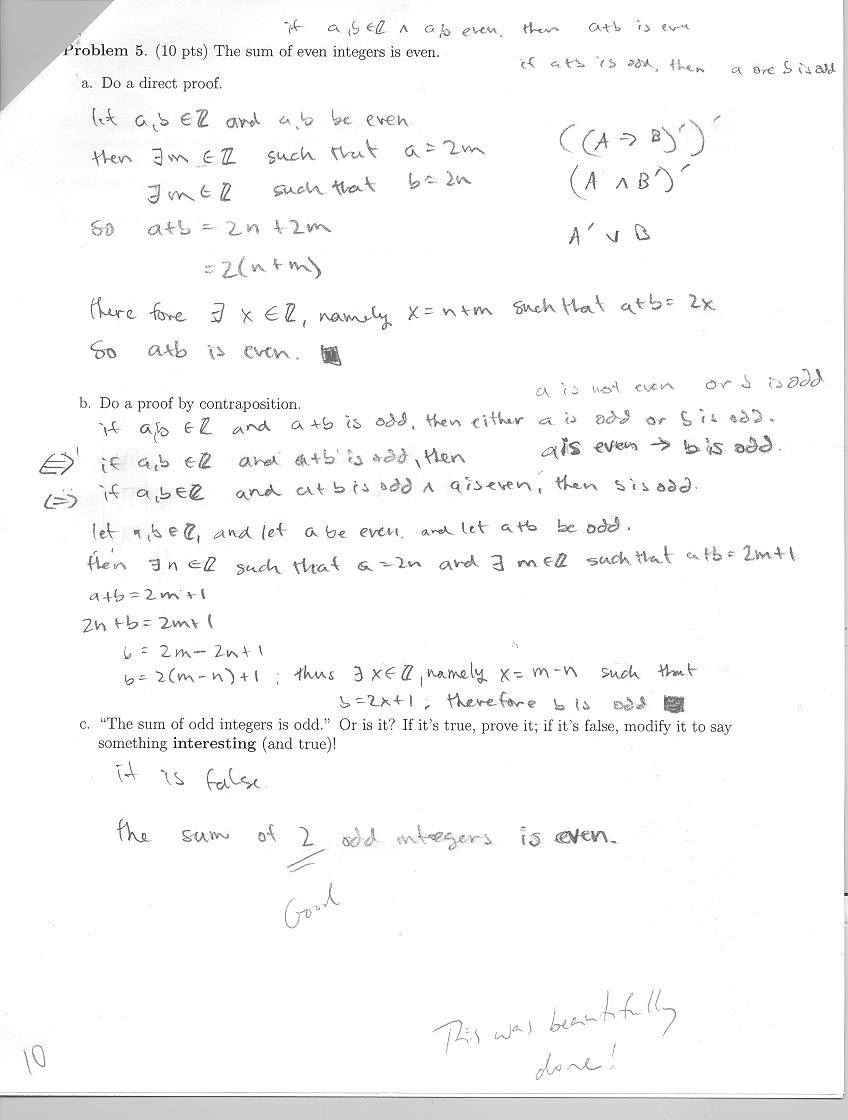 if a,b ∈ ℤ ∧ a,b even, then a+b is even
Problem 5. (10 pts) The sum of even integers is even.
if a+b is odd, then a or b is odd
a. Do a direct proof.
let a,b ∈ ℤ and a,b be even
then ∃m ∈ ℤ such that a = 2m
∃m ∈ ℤ such that b = 2n
So a+b = 2n + 2m
= 2(n+m)
((A → B)')'
(A ∧ B')'
A' ∨ B
there fore ∃ x ∈ ℤ, namely x = n+m such that a+b = 2x
So a+b is even. ■
a is not even or b is odd
b. Do a proof by contraposition.
if a,b ∈ ℤ and a+b is odd, then either a is odd or b is odd.
⟺ if a,b ∈ ℤ and a+b is odd, then a is even → b is odd.
⟺ if a,b ∈ ℤ and a+b is odd ∧ a is even, then b is odd.
let a,b ∈ ℤ, and let a be even, and let a+b be odd.
then ∃n ∈ ℤ such that a = 2n and ∃ m ∈ ℤ such that a+b = 2m+1
a+b = 2m+1
2n+b = 2m+1
b = 2m-2n+1
b = 2(m-n)+1 ; thus ∃ x ∈ ℤ, namely x = m-n such that
b = 2x+1, therefore b is odd ■
c. "The sum of odd integers is odd." Or is it? If it's true, prove it; if it's false, modify it to say
something interesting (and true)!
it is false.
the sum of 2 odd integers is even.
Good
This was beautifully
done!
10